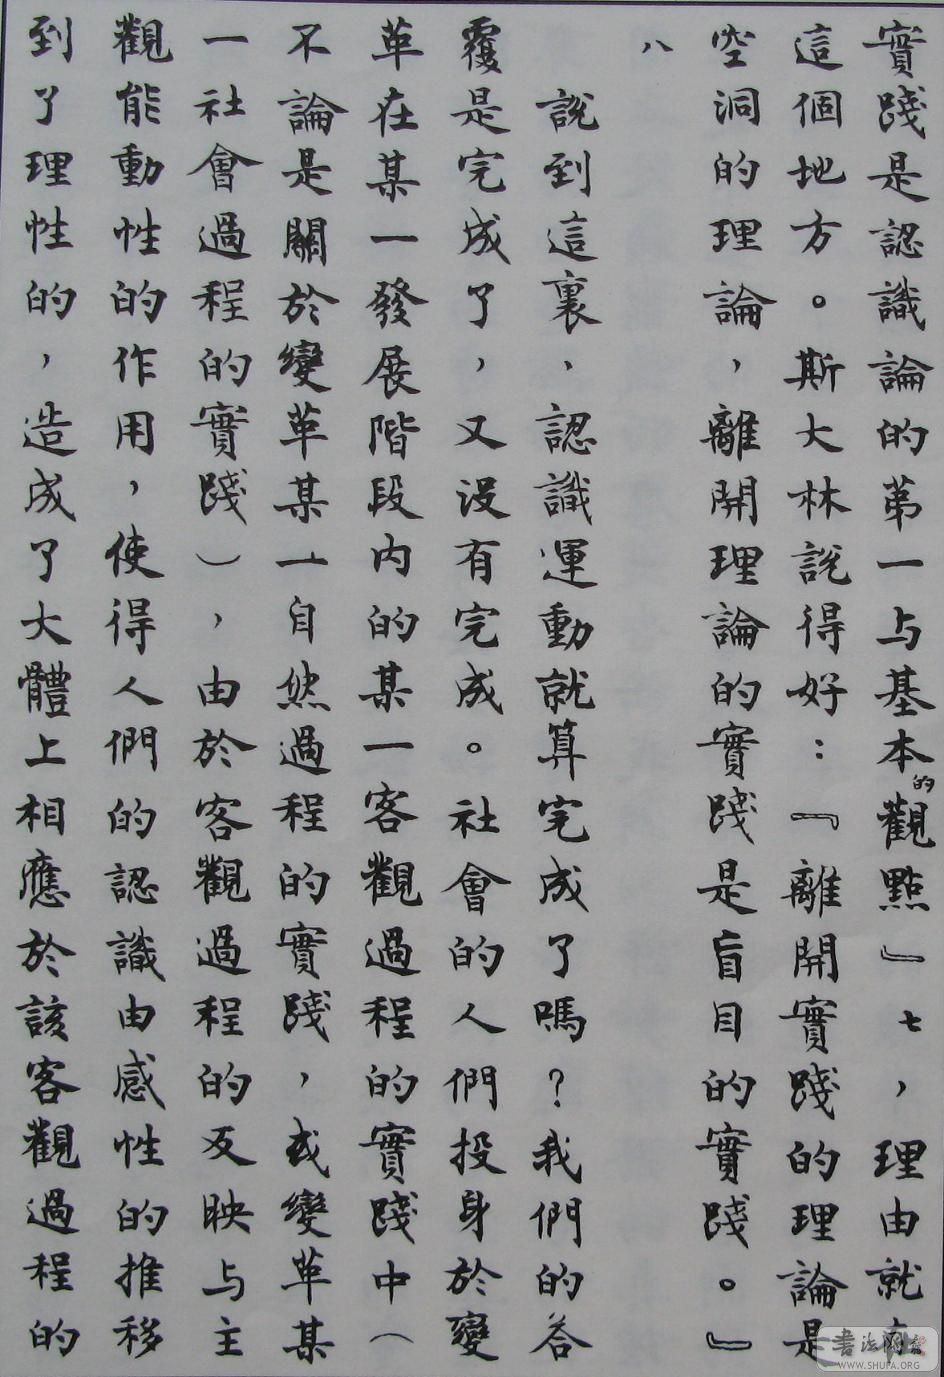 實踐是認識論的第一与基本的觀點』七，理由就在
這個地方。斯大林說得好：『離開實踐的理論是
空洞的理論，離開理論的實踐是盲目的實踐。』
八
說到這裏，認識運動就算完成了嗎？我們的答
覆是完成了，又沒有完成。社會的人們投身於變
革在某一發展階段内的某一客觀過程的實踐中（
不論是關於變革某一自然過程的實踐，或變革某
一社會過程的實踐），由於客觀過程的反映与主
觀能動性的作用，使得人們的認識由感性的推移
到了理性的，造成了大體上相應於該客觀過程的
WWW.SHUFA.ORG